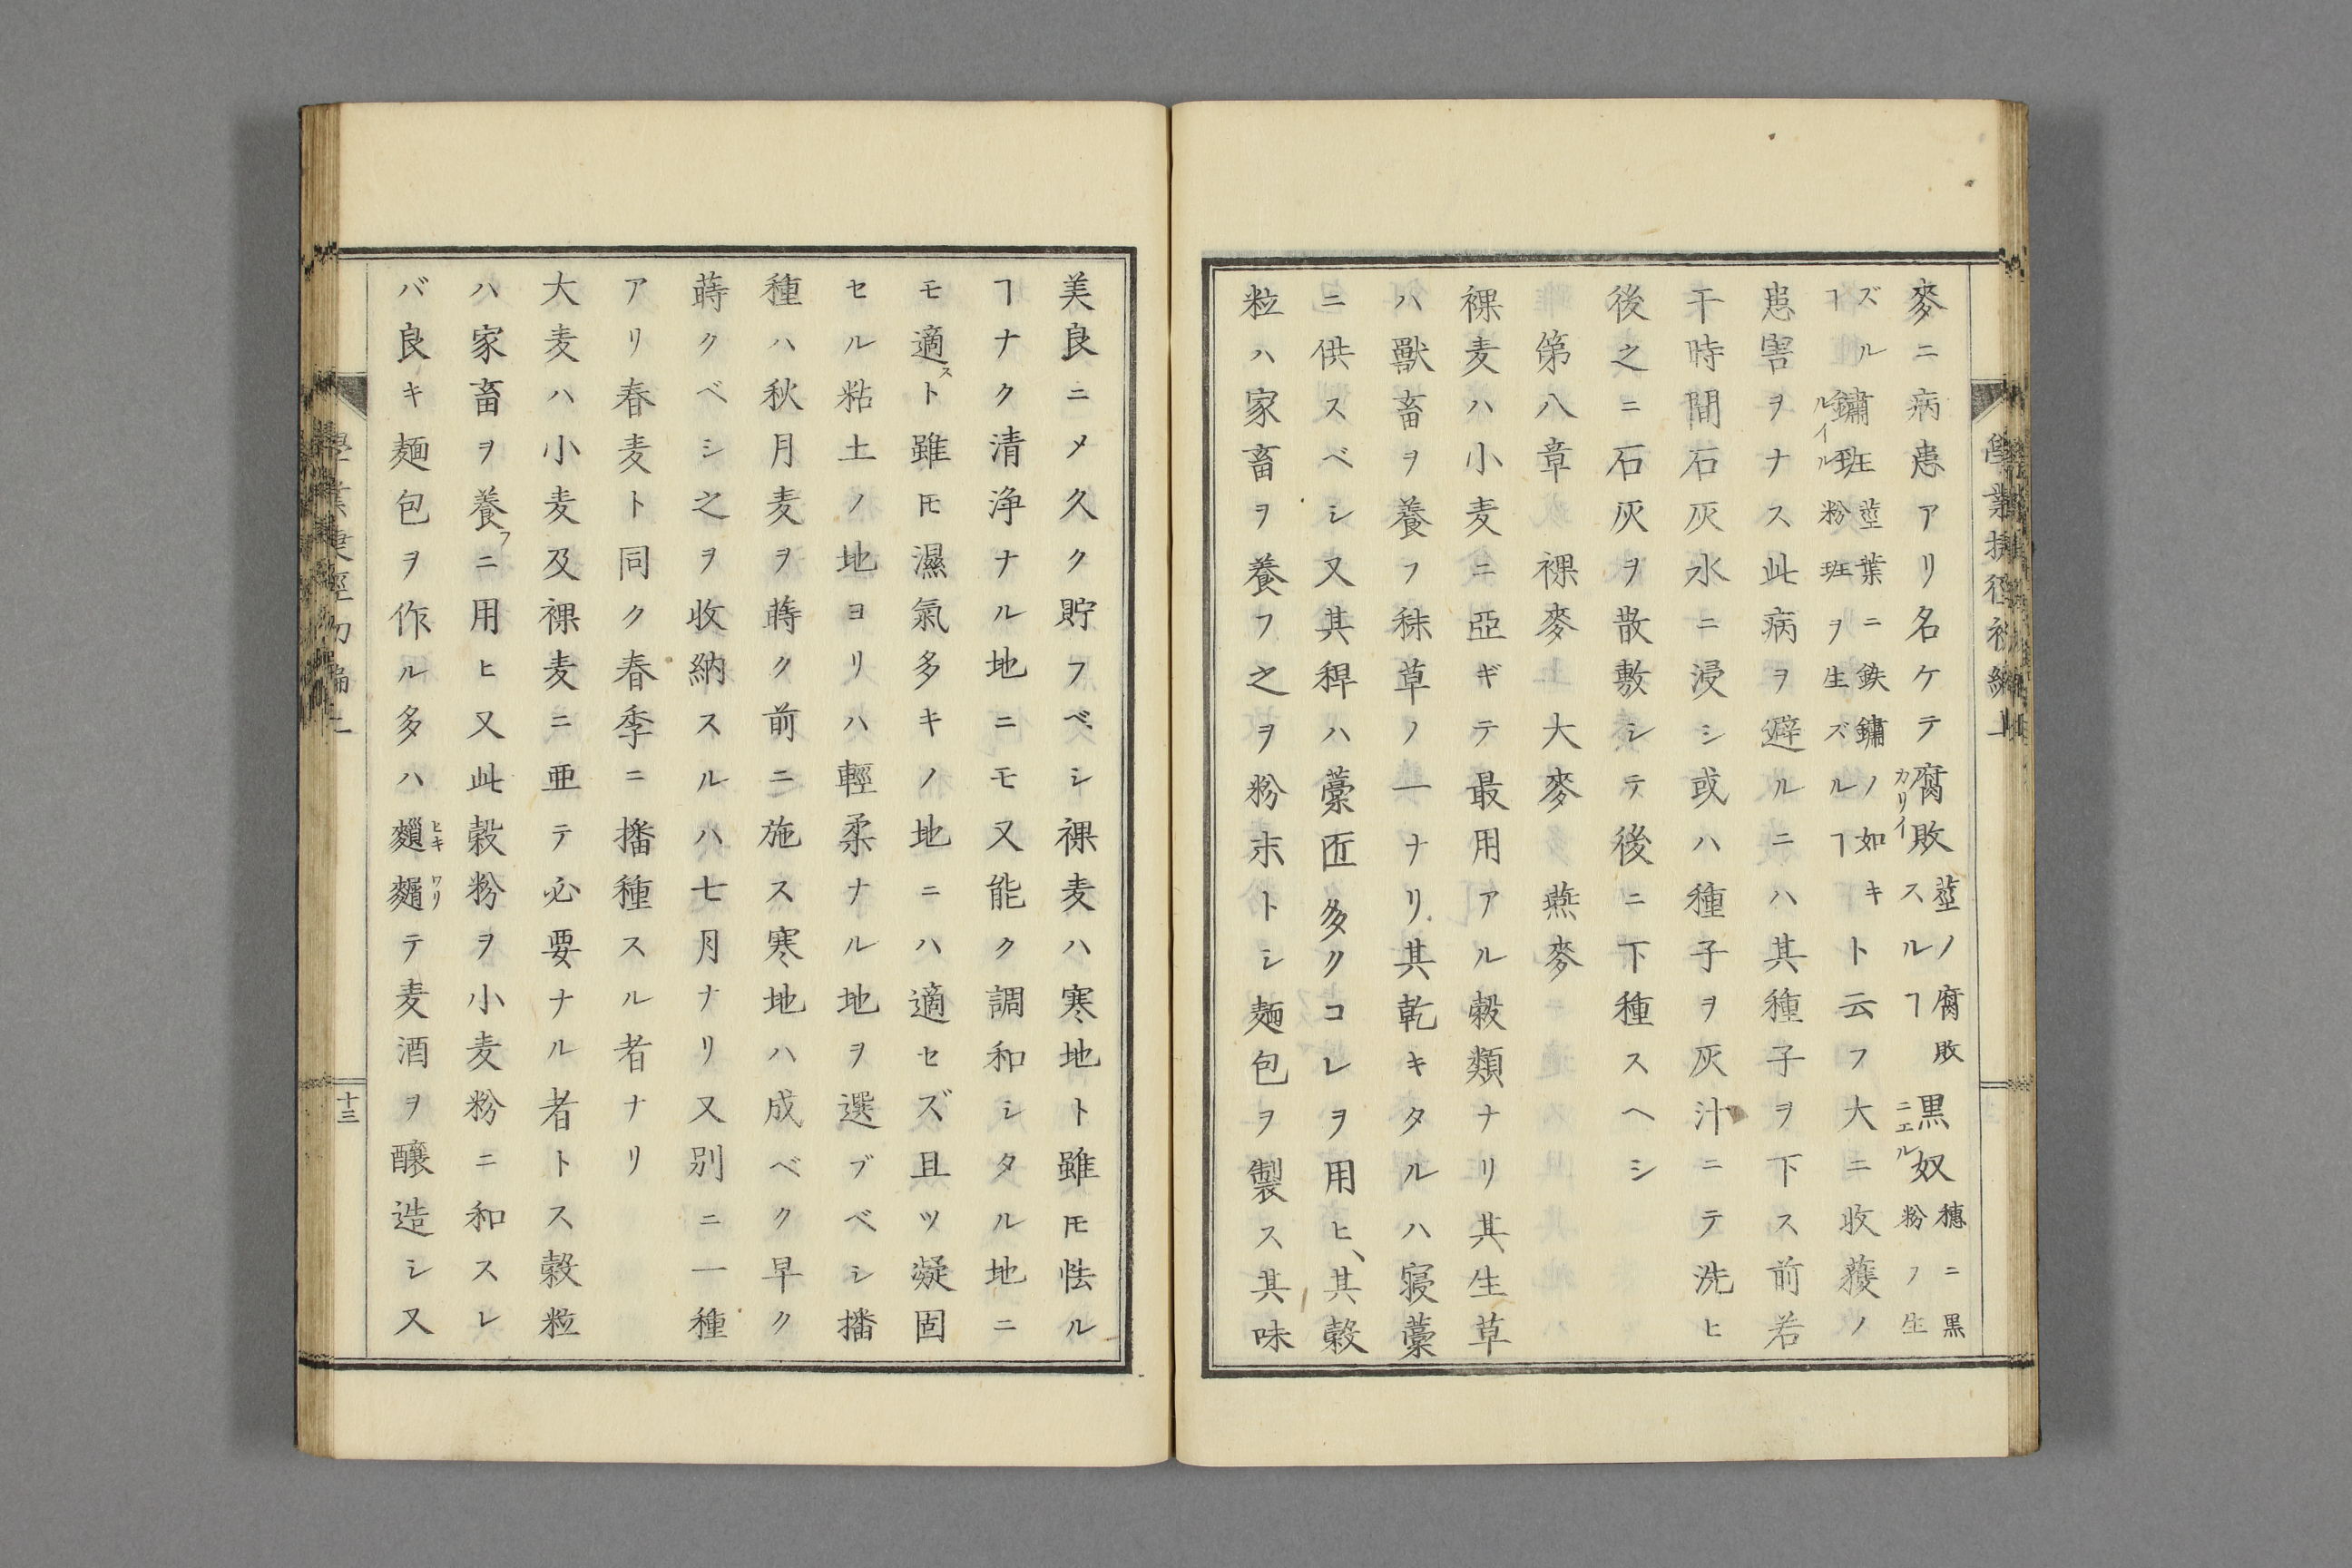 麥ニ病患アリ名ケテ腐敗カリイ莖ノ腐敗スルヿ黒奴ニエル穂ニ黒粉ノ生
ズルヿ鏽班ルイル莖葉ニ鉄鏽ノ如キ粉班ヲ生ズルヿト云フ大ニ收穫ノ
患害ヲナス此病ヲ避ルニハ其種子ヲ下ス前若
干時間石灰水ニ浸シ或ハ種子ヲ灰汁ニテ洗ヒ
後之ニ石灰ヲ散敷シテ後ニ下種スヘシ
第八章 裸麥 大麥 燕麥
裸麦ハ小麦ニ亞ギテ最用アル穀類ナリ其生草
ハ獸畜ヲ養フ秣草ノ一ナリ其乾キタルハ寝藁
ニ供スベシ又其稈ハ藁匠多クコレヲ用ヒ、其穀
粒ハ家畜ヲ養フ之ヲ粉末トシ麺包ヲ製ス其味
美良ニメ久ク貯フベシ裸麦ハ寒地ト雖𪜈怯ル
ヿナク清浄ナル地ニモ又能ク調和シタル地ニ
モ適スト雖𪜈濕氣多キノ地ニハ適セズ且ツ凝固
セル粘土ノ地ヨリハ輕柔ナル地ヲ選ブベシ播
種ハ秋月麦ヲ蒔ク前ニ施ス寒地ハ成ベク早ク
蒔クベシ之ヲ收納スルハ七月ナリ又別ニ一種
アリ春麦ト同ク春季ニ播種スル者ナリ
大麦ハ小麦及裸麦ニ亜テ必要ナル者トス穀粒
ハ家畜ヲ養フニ用ヒ又此穀粉ヲ小麦粉ニ和スレ
バ良キ麺包ヲ作ル多ハ麵ヒキ麱ワリテ麦酒ヲ醸造シ又
十三